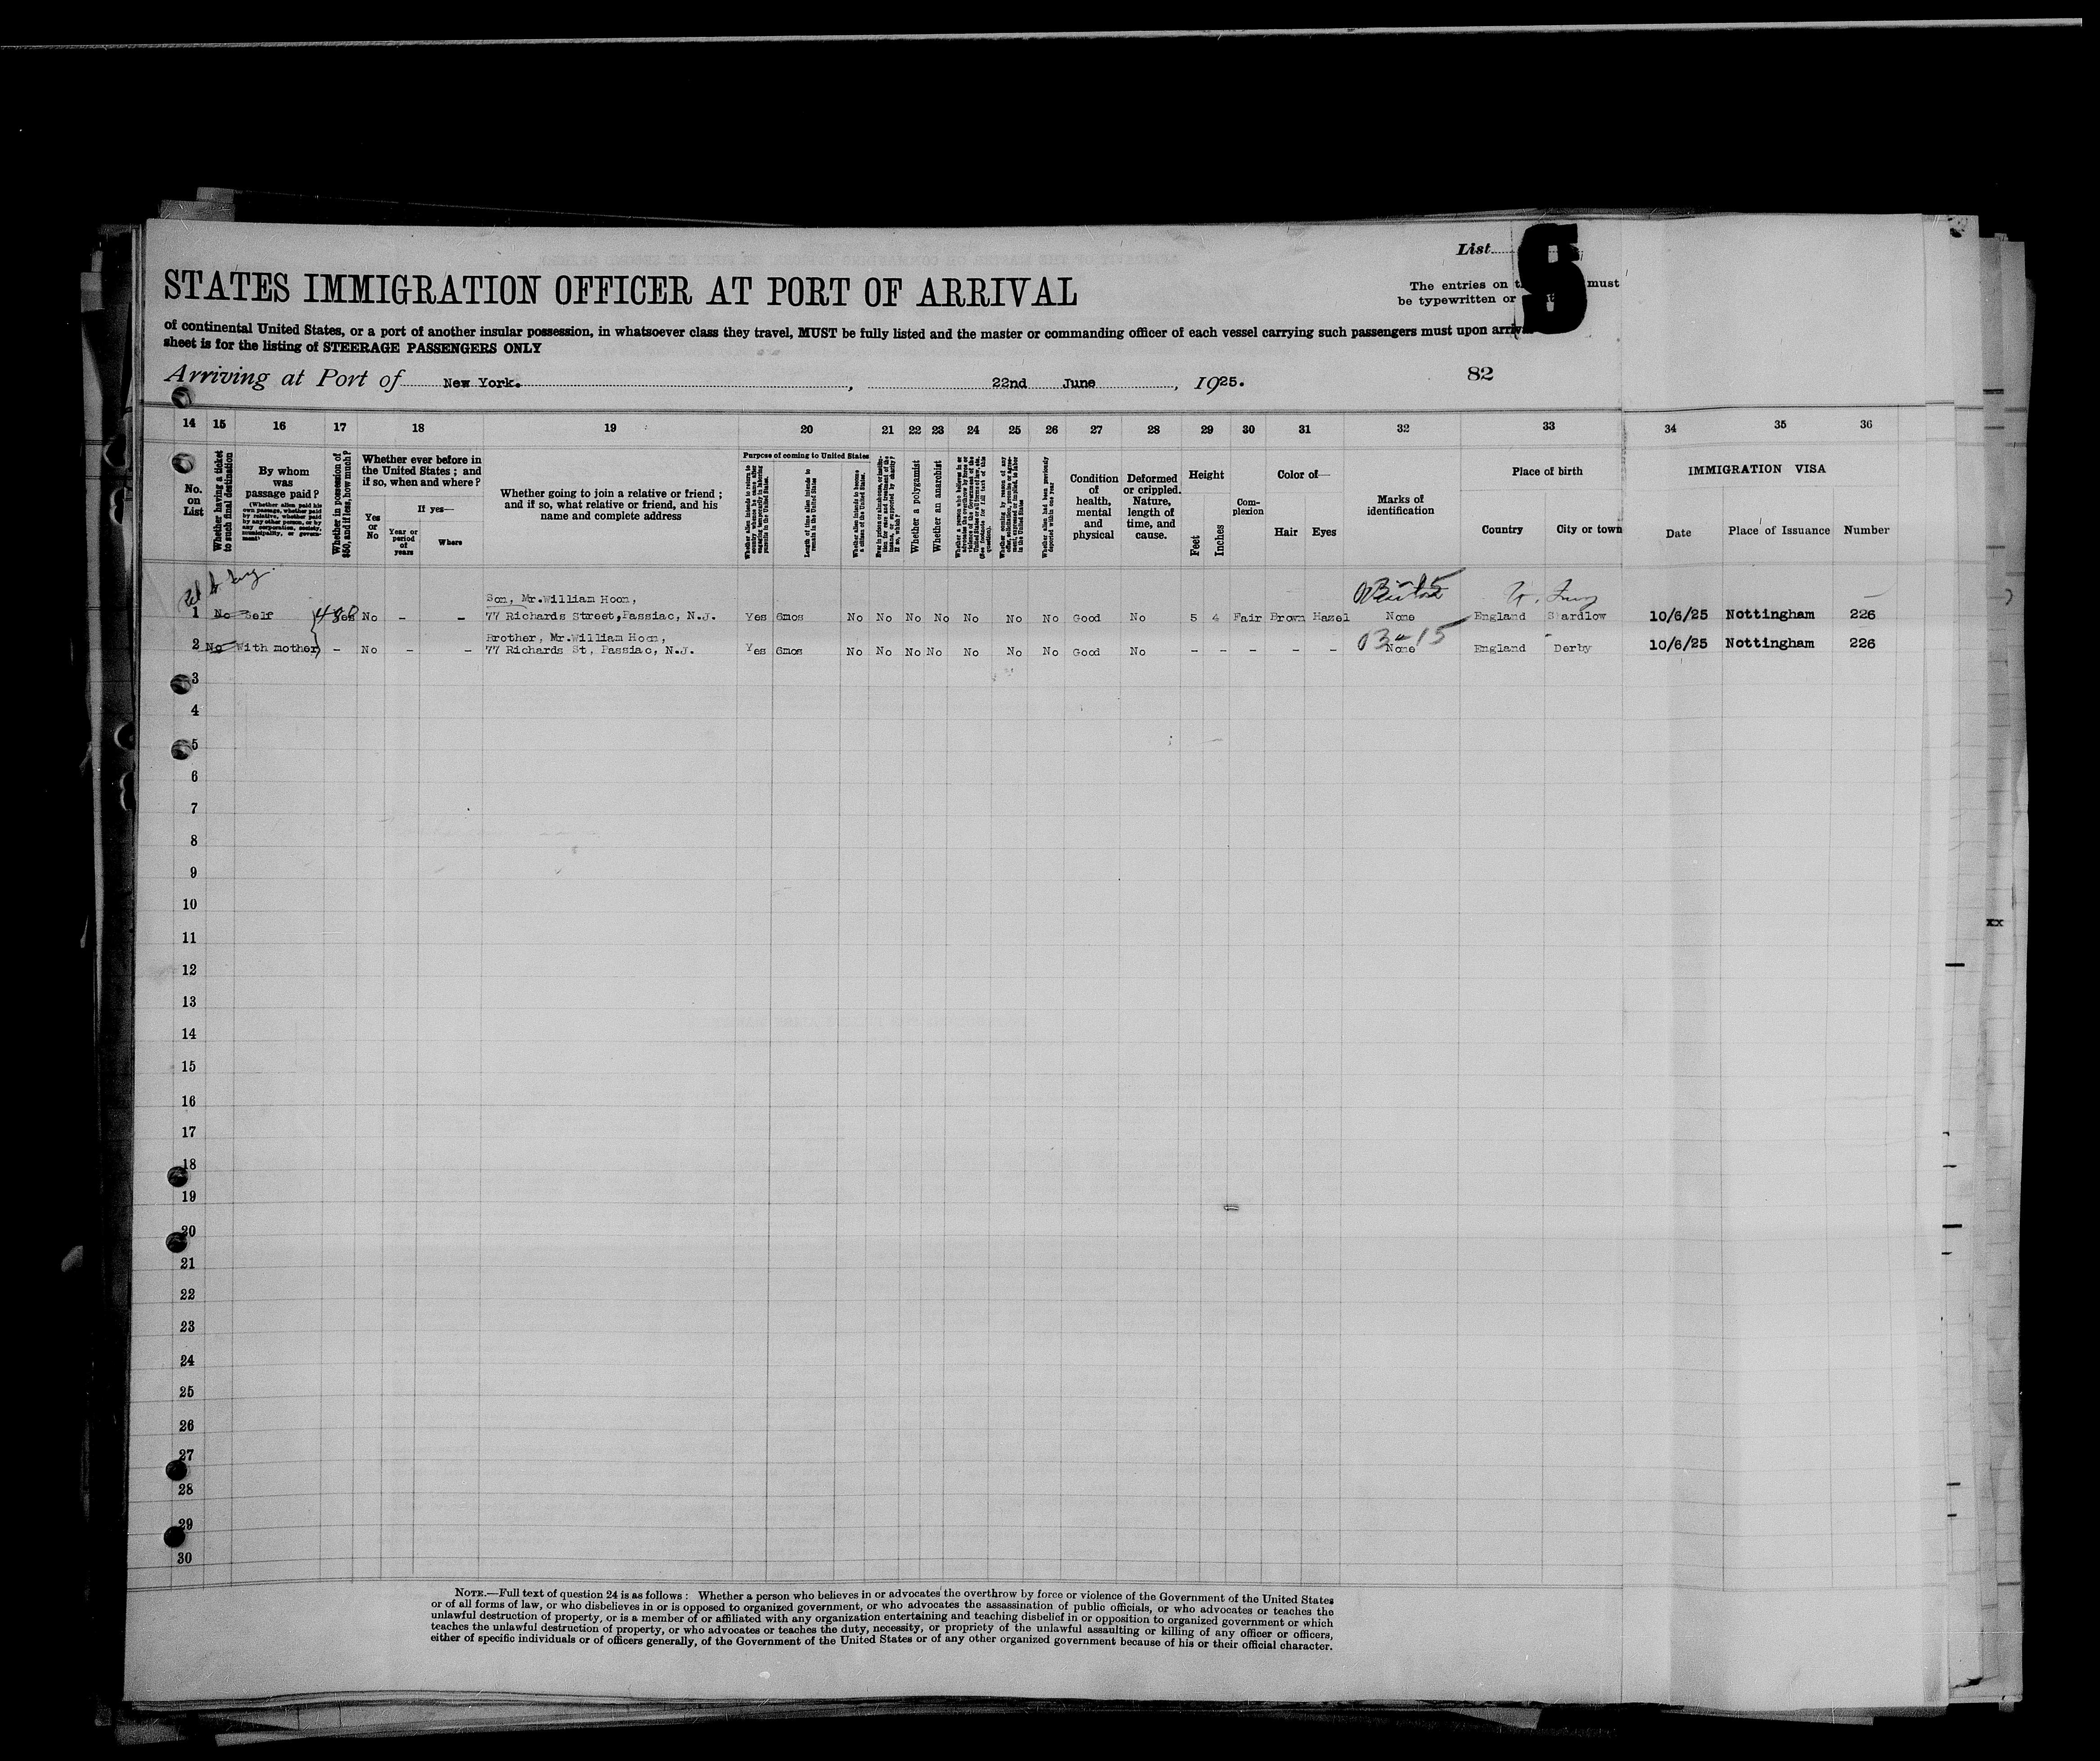 List
S
STATES IMMIGRATION OFFICER AT PORT OF ARRIVAL
The entries on must
be typewritten or
of continental United States, or a port of another insular possession, in whatsoever class they travel, MUST be fully listed and the master or commanding officer of each vessel carrying such passengers must upon
sheet is for the listing of STEERAGE PASSENGERS ONLY
Arriving at Port of New York. , 22nd June , 1925.
82
14 15 16 17 18 19 20 21 22 23 24 25 26 27 28 29 30 31 32 33 34 35 36
No. on List
Whether having a ticket to such final destination
By whom was passage paid?
(Whether alien paid his own passage, whether paid by relative, whether paid by any other person, or by any corporation, society, municipality, or government)
Whether in possession of $50, and if less, how much?
Whether ever before in the United States; and if so, when and where?
Yes or No
If yes—
Year or period of years
Where
Whether going to join a relative or friend; and if so, what relative or friend, and his name and complete address
Purpose of coming to United States
Whether alien intends to return to country whence he came after engaging temporarily in laboring pursuits in the United States.
Length of time alien intends to remain in the United States
Whether alien intends to become a citizen of the United States.
Whether a polygamist
Whether an anarchist
Whether alien had been previously deported within one year
Condition of health, mental and physical
Deformed or crippled. Nature, length of time, and cause.
Height
Feet
Inches
Complexion
Color of—
Hair Eyes
Marks of identification
Place of birth
Country City or town
IMMIGRATION VISA
Date Place of Issuance Number
Son, Mr.William Hoon,
1 No Self Yes No - - 77 Richards Street,Passiac, N.J. Yes 6mos No No No No No No No Good No 5 4 Fair Brown Hazel None England S ardlow 10/6/25 Nottingham 226
Brother, Mr.William Hoon,
2 No With mother - No - - 77 Richards St, Passiac, N.J. Yes 6mos No No No No No No No Good No - - - - - None England Derby 10/6/25 Nottingham 226
3
4
5
6
7
8
9
10
11
12
13
14
15
16
17
18
19
20
21
22
23
24
25
26
27
28
29
30
NOTE.—Full text of question 24 is as follows: Whether a person who believes in or advocates the overthrow by force or violence of the Government of the United States
or of all forms of law, or who disbelieves in or is opposed to organized government, or who advocates the assassination of public officials, or who advocates or teaches the
unlawful destruction of property, or is a member of or affiliated with any organization entertaining and teaching disbelief in or opposition to organized government or which
teaches the unlawful destruction of property, or who advocates or teaches the duty, necessity, or propriety of the unlawful assaulting or killing of any officer or officers,
either of specific individuals or of officers generally, of the Government of the United States or of any other organized government because of his or their official character.
xx